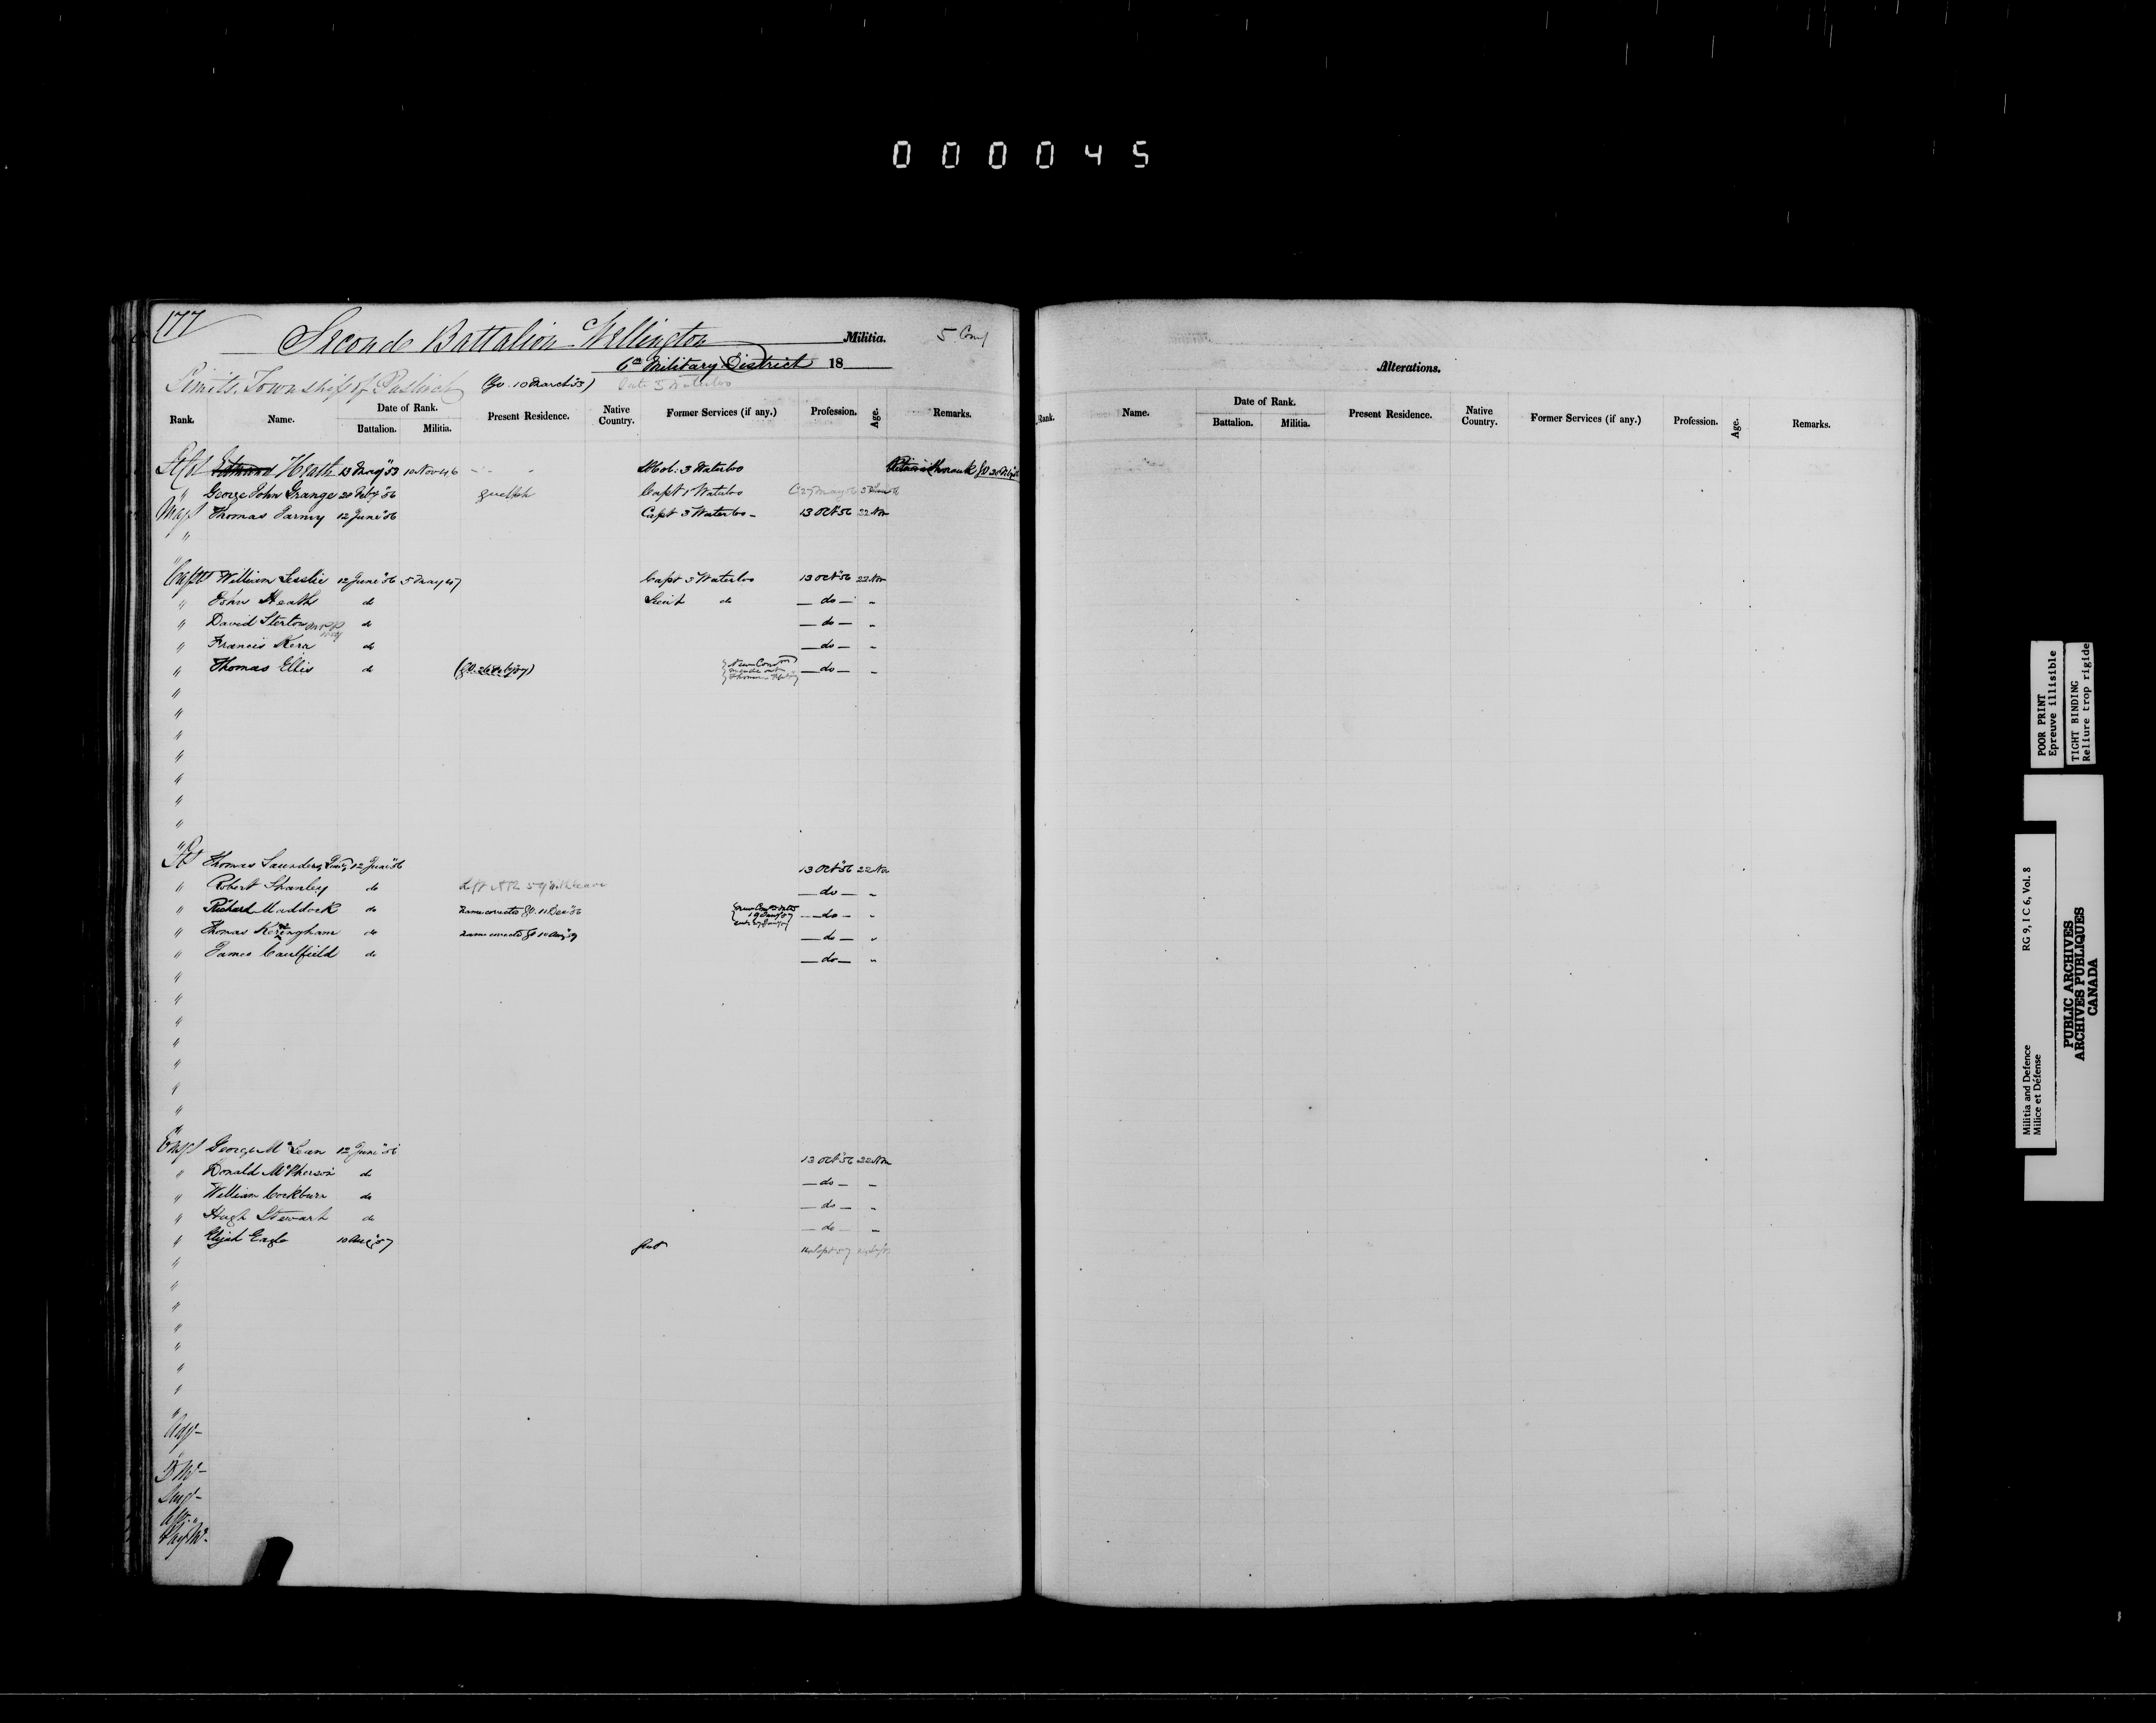 000045
177
Second Battalion Wellington Militia. 5 Comp
6th Military District 18
Limits. Township of Puslinch (GO. 10 March 53) late 3 Waterloo
Alterations.
Rank. Name. Date of Rank. Battalion. Militia. Present Residence. Native Country. Former Services (if any.) Profession. Age. Remarks.
Rank. Name. Date of Rank. Battalion. Militia. Present Residence. Native Country. Former Services (if any.) Profession. Age. Remarks.
Heath 13 May 53 10 Nov 46 3 Waterloo
" George John Grange 20 Feby 56 Guelph Capt 1 Waterloo 27 May 56
Majr Thomas 12 June 56 Capt 3 Waterloo - 13 Oct 56 22 Nov
"
"
Capts William Leslie 12 June 56 5 May 47 Capt 3 Waterloo 13 Oct 56 22 Nov
" John Heath do Lieut do — do — "
" David Stirton MPP do — do — "
" Francis Kerr do — do — "
" Thomas Ellis do — do — "
"
"
"
"
"
"
"
"
Lts Thomas Saunders, 12 June 56 13 Oct 56 22 Nov
" Robert Shanley do — do — "
" Richard Maddock do name corrected GO. 11 Dec 56 — do — "
" Thomas do — do — "
" James Caulfield do — do — "
"
"
"
"
"
"
"
"
Ensgs George McLean 12 June 56 13 Oct 56 22 Nov
" Donald McPherson do — do — "
" William Cockburn do — do — "
" Hugh Stewart do — do — "
" Elijah Eagle Gent
"
"
"
"
"
"
"
"
Adjt -
Q Mr -
Surg -
Pay Mr -
POOR PRINT
Epreuve illisible
TIGHT BINDING
Reliure trop rigide
RG 9, I C 6, Vol. 8
Militia and Defence
Milice et Défense
PUBLIC ARCHIVES
ARCHIVES PUBLIQUES
CANADA